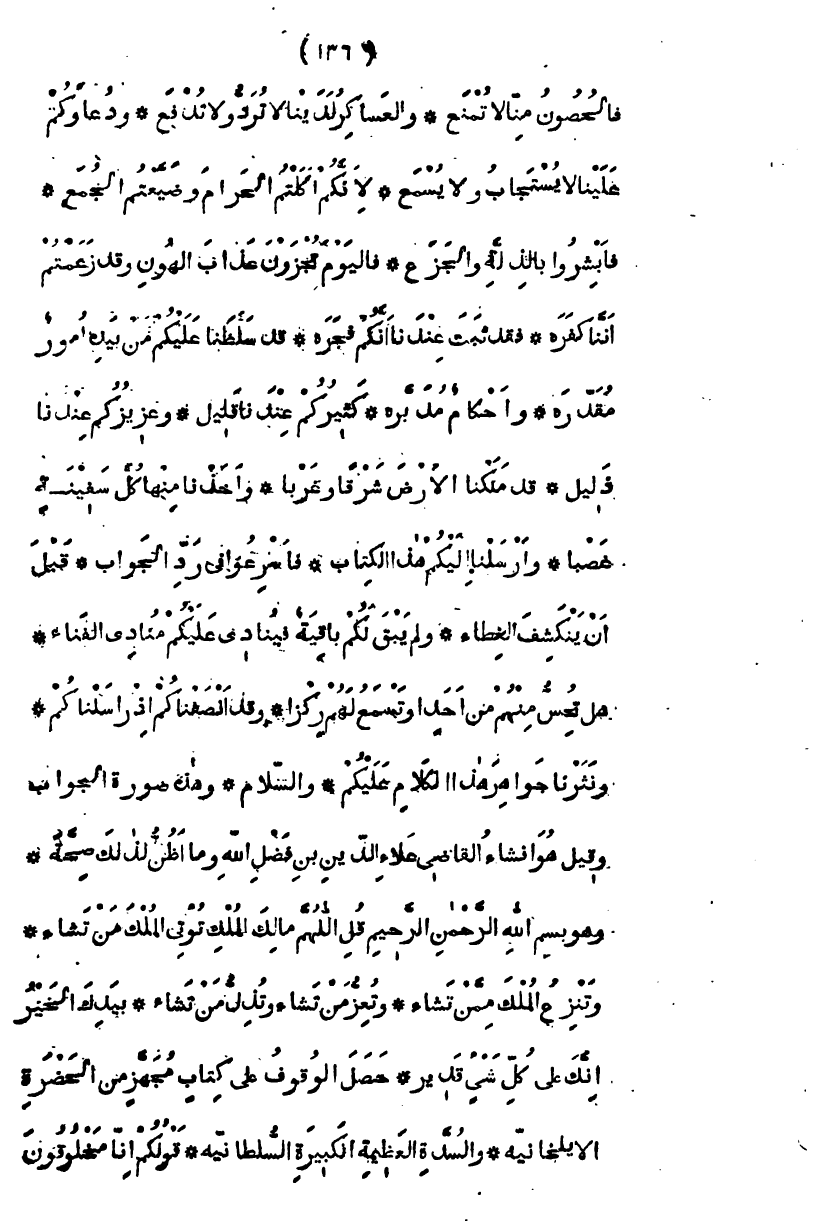 (١٣٦)
فالحُصُونُ مِنّا لا تُمْنَع * والعَساكِرُ لَدَيْنا لا تُرَدُّ ولا تُدْفَع * ودُعاؤُكُمْ
عَلَيْنا لا يُسْتَجابُ ولا يُسْمَع * لِاَنَّكُمْ اَكَلْتُمُ الحَرامَ وضَيَّعْتُم الجُمَع *
فاَبْشِرُوا بالذِلَّةِ والجَزَع * فاليَوْمَ تُجْزَوْنَ عَذابَ الهُونِ وقد زَعَمْتُمْ
اَنَّنا كَفَرَه * فقد ثَبَتَ عِنْدَنا اَنَّكُمْ فَجَرَه * قد سَلَّطَنا عَلَيْكُمْ مَنْ بِيَدِهِ اُمورٌ
مُقَدَّرَه * واَحْكامٌ مُدَبَّرَه * كَثِيرُكُمْ عِنْدَنا قَلِيل * وعَزِيزُكُم عِنْدَنا
ذَلِيل * قد مَلَكْنا الاَرْضَ شَرْقًا وغَرْبا * واَخَذْنا مِنْها كُلَّ سَفِيْنَــةٍ
غَصْبا * واَرْسَلْنا اِلَيْكُمْ هٰذا الكِتاب * فاَسْرِعُوا فى رَدِّ الجَواب * قَبْلَ
اَنْ يَنْكَشِفَ الغِطاء * ولم يَبْقَ لَكُمْ باقِيَةٌ فيُنادِى عَلَيْكُمْ مُنادِى الفَناء *
هل تُحِسُّ مِنْهُمْ مِن اَحَدٍ او تَسْمَعُ لَهُمْ رِكْزا * وقد اَنْصَفْناكُمْ اِذْ راسَلْناكُمْ *
ونَثَرْنا جَواهِرَ هٰذا الكَلامِ عَلَيْكُمْ * والسَّلام * وهٰذه صورة الجواب
وقيل هُوَ انشاءُ القاضِى عَلاءِ الدّينِ بنِ فَضْلِ اللهِ وما اَظُنُّ لذٰلك صِحَّةً *
وهو بسم اللهِ الرَّحْمٰنِ الرَّحِيمِ قُلِ اللّٰهُمَّ مالِكَ المُلْكِ تُوْتِى المُلْكَ مَنْ تَشاء *
وتَنْزِعُ المُلْكَ مِمَّنْ تَشاء * وتُعِزُّ مَنْ تَشاء وتُذِلُّ مَنْ تَشاء * بِيَدِكَ الخَيْرُ
اِنَّكَ على كُلِّ شَىْءٍ قَدِير * حَصَلَ الوُقوفُ على كِتابٍ مُجَهَّزٍ من الحَضْرَةِ
الايلخانيّه * والسُّدَّةِ العَظِيمَةِ الكَبِيرَةِ السُّلطانيّه * قَوْلُكُمْ اِنّا مَخْلُوقُونَ